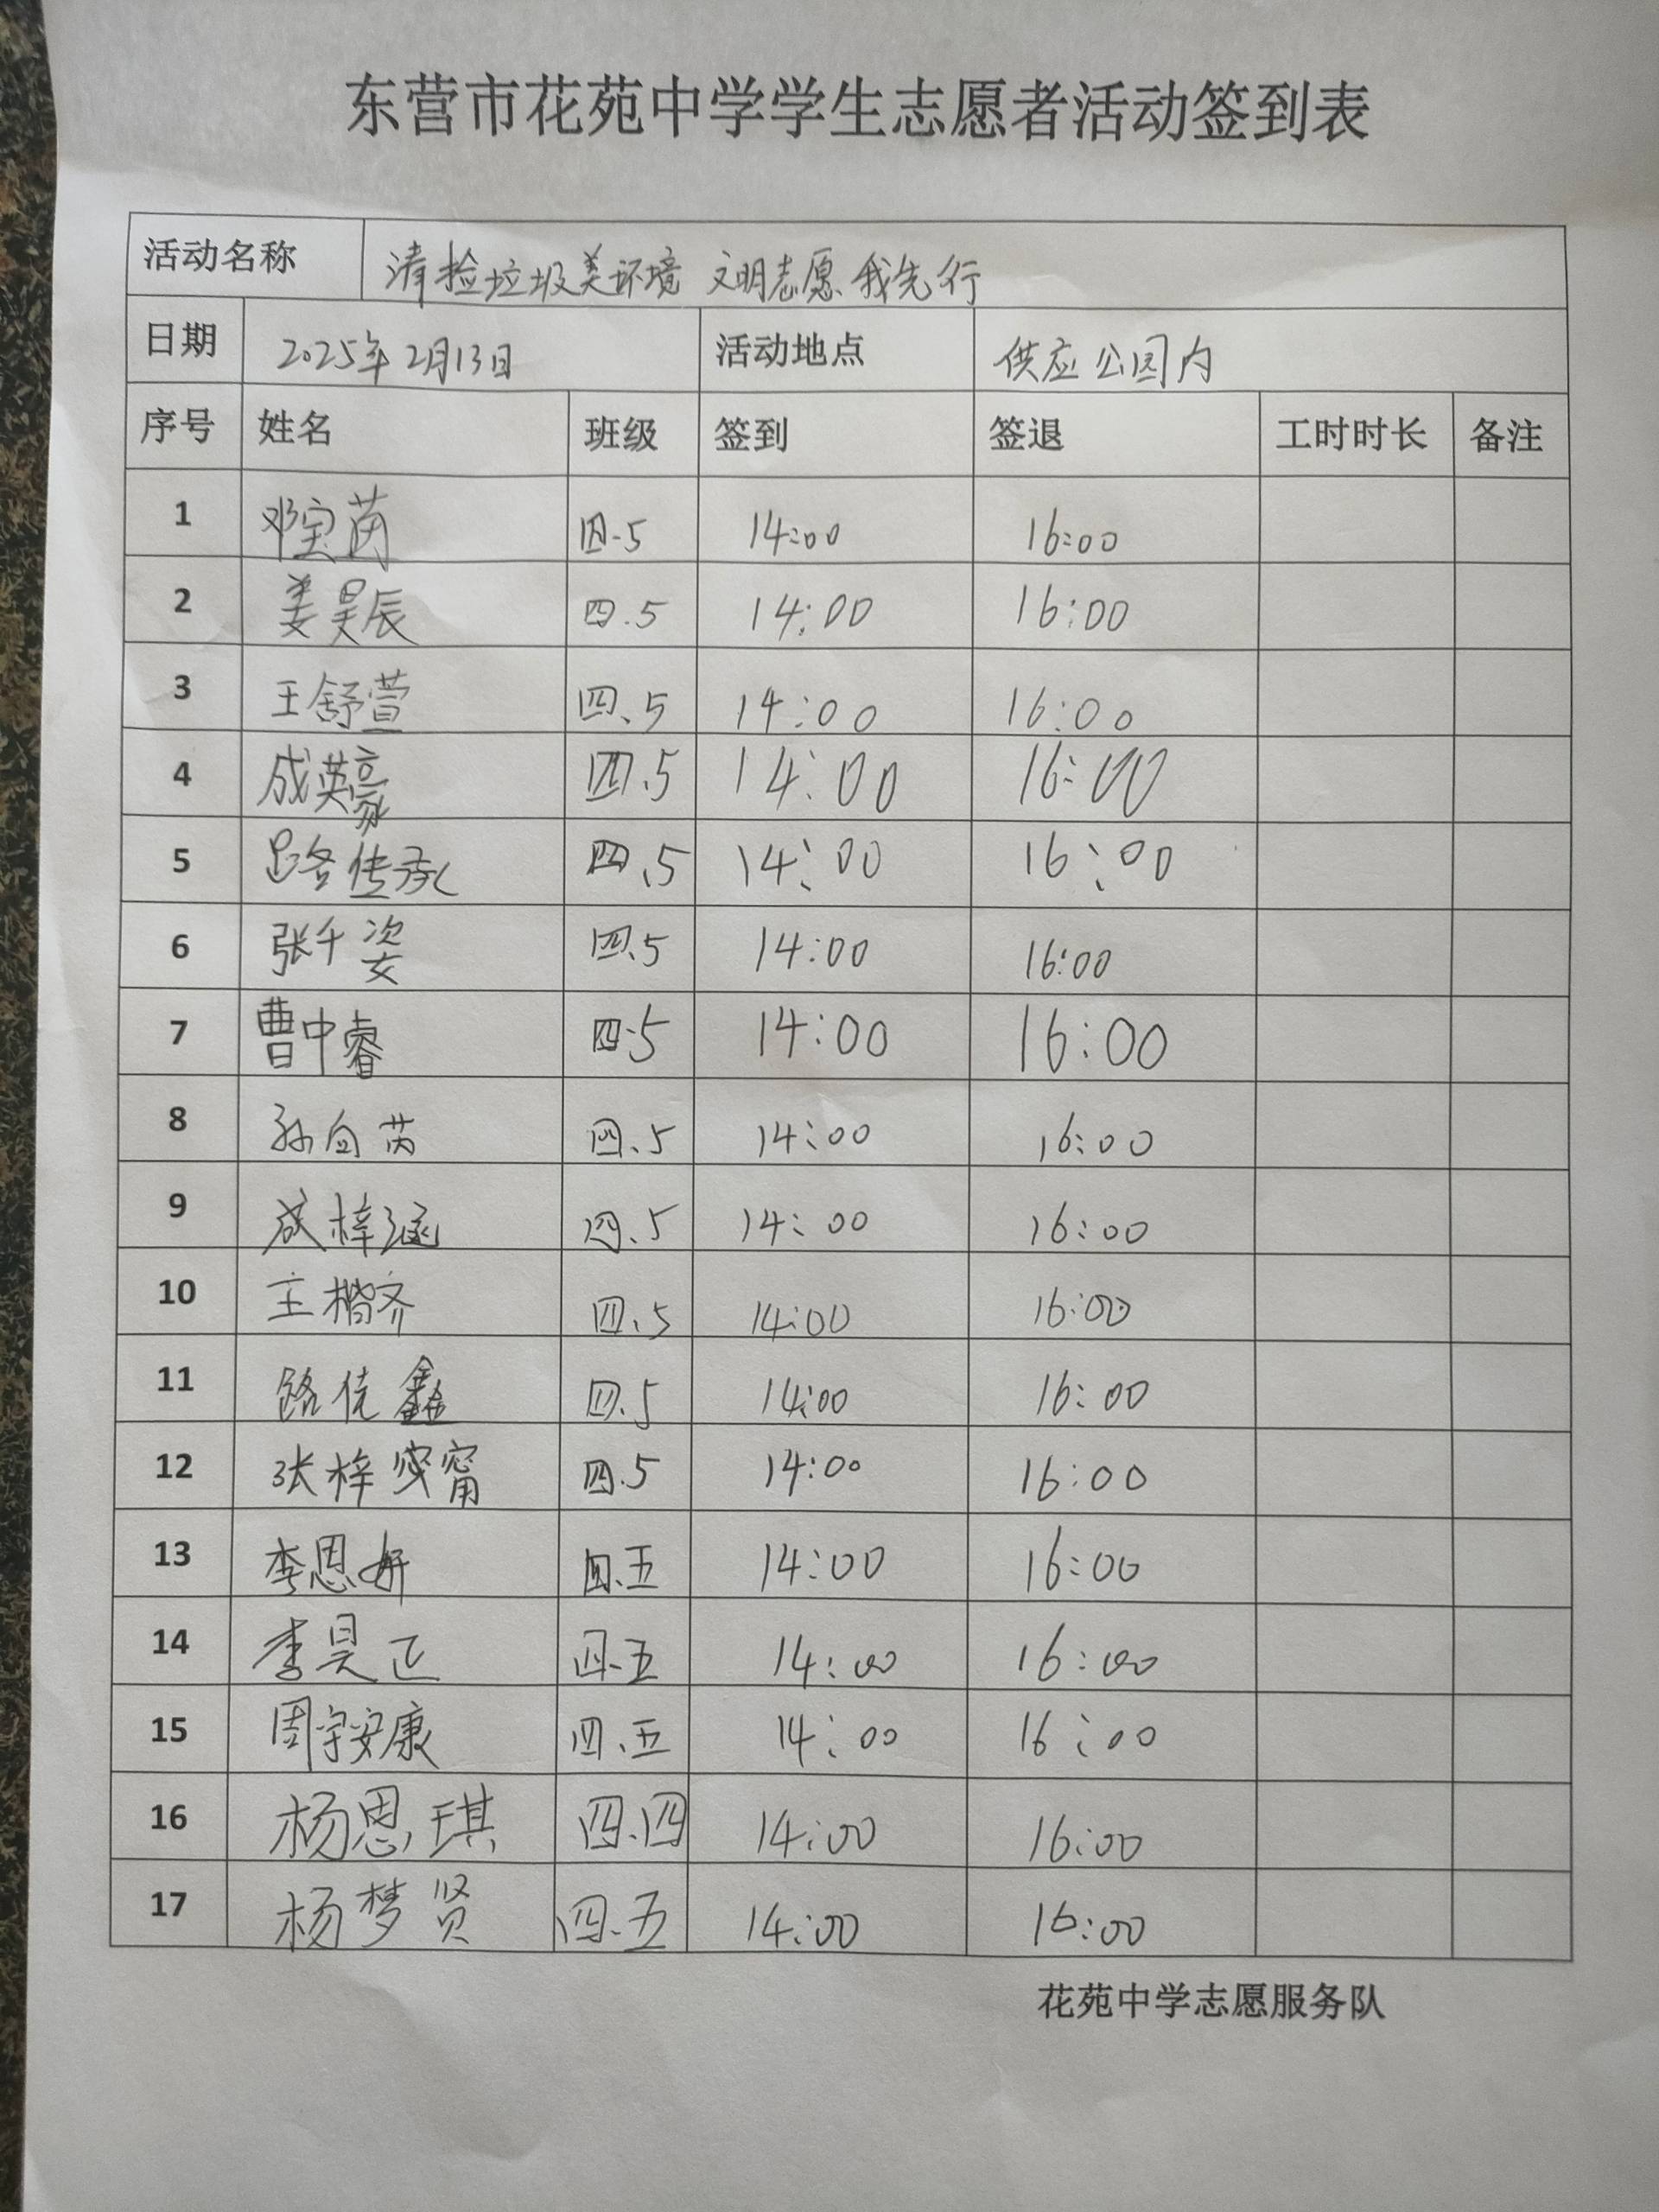 东营市花苑中学学生志愿者活动签到表
活动名称 清捡垃圾美环境 文明志愿我先行
日期 2025年2月13日 活动地点 供应公园内
序号 姓名 班级 签到 签退 工时时长 备注
1 邓宝茵 四.5 14:00 16:00
2 姜昊辰 四.5 14:00 16:00
3 王舒萱 四、5 14:00 16:00
4 成英豪 四.5 14:00 16:00
5 路传承 四.5 14:00 16:00
6 张千姿 四.5 14:00 16:00
7 曹中睿 四.5 14:00 16:00
8 孙向芮 四、5 14:00 16:00
9 成梓涵 四.5 14:00 16:00
10 王楷齐 四.5 14:00 16:00
11 路侊鑫 四.5 14:00 16:00
12 张梓 甯 四.5 14:00 16:00
13 李恩妤 四.五 14:00 16:00
14 李昊正 四.五 14:00 16:00
15 周宇安康 四、五 14:00 16:00
16 杨恩琪 四.四 14:00 16:00
17 杨梦贤 四.五 14:00 16:00
花苑中学志愿服务队